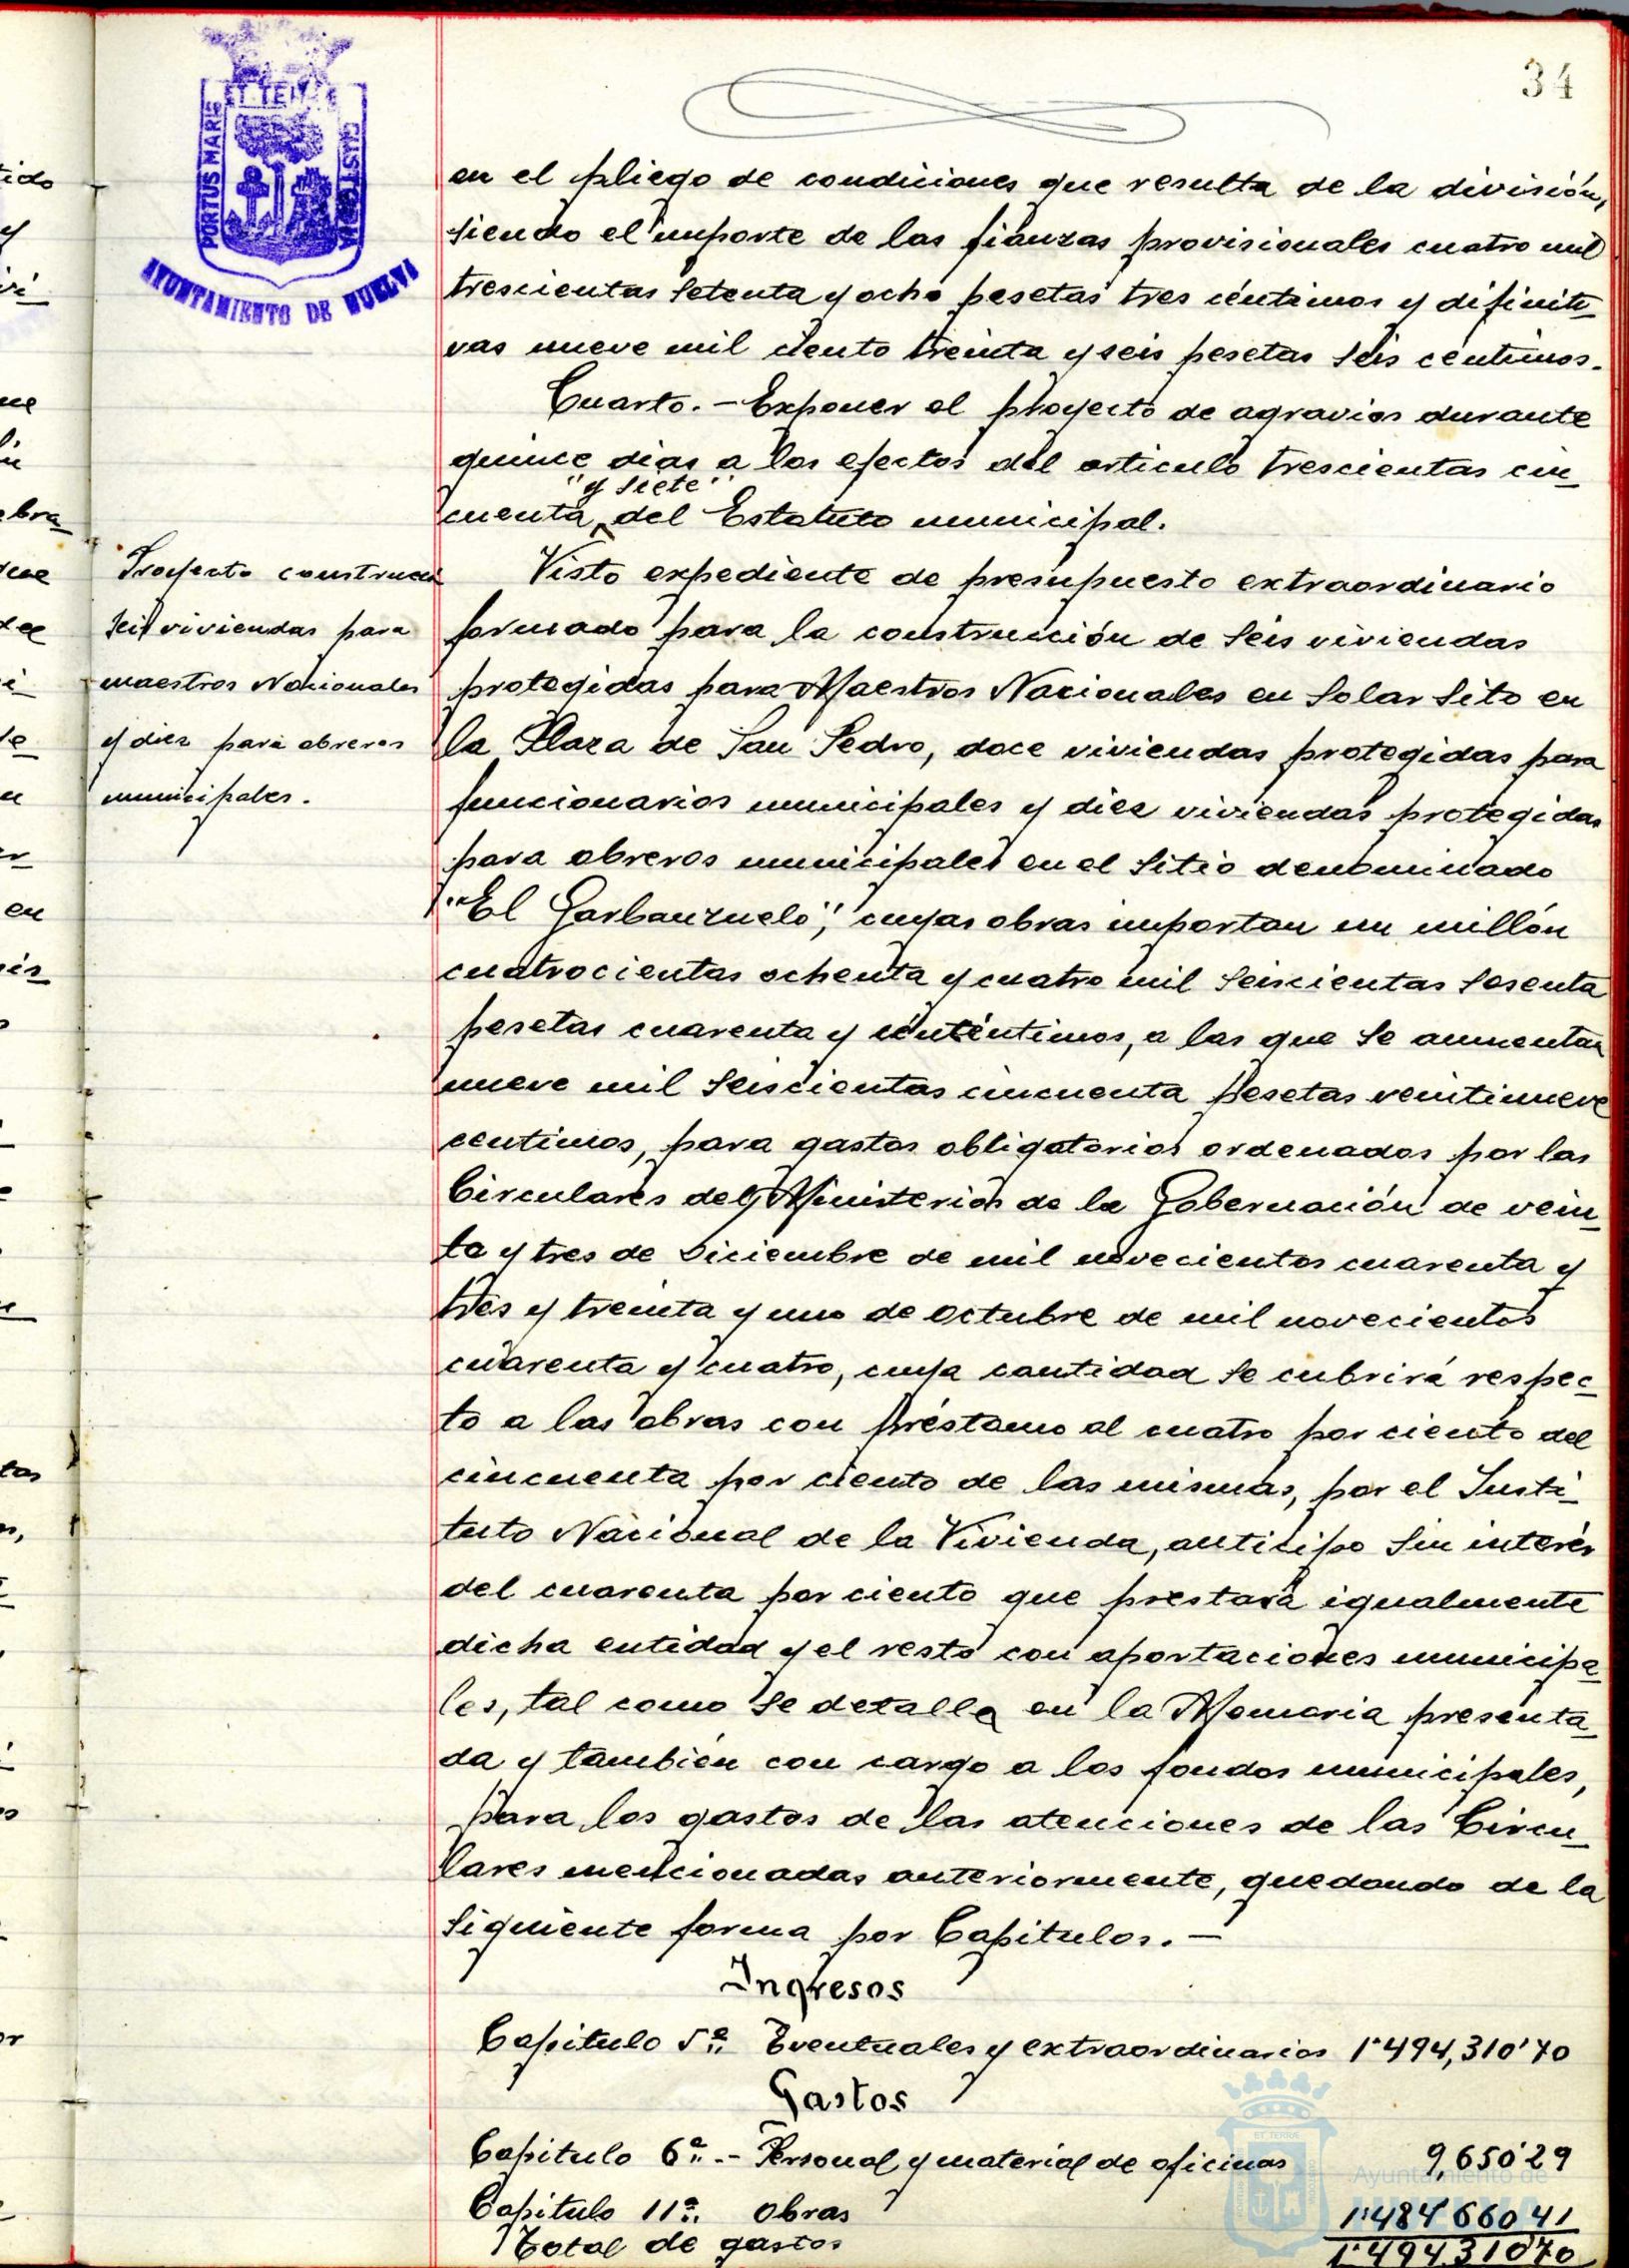 34
PORTUS MARIS
ET TERRE
CUSTODIA
AYUNTAMIENTO DE HUELVA
en el pliego de condiciones que resulta de la división,
siendo el importe de las fianzas provisionales cuatro mil
trescientas setenta y ocho pesetas tres céntimos y difiniti-
vas nueve mil ciento treinta y seis pesetas seis céntimos.
Cuarto.- Exponer el proyecto de agravios durante
quince dias a los efectos del articulo trescientas cin-
"y siete"
cuenta del Estatuto municipal.
Proyecto construcci
seis viviendas para
maestros Nacionales
y diez para obreros
municipales.
Visto expediente de presupuesto extraordinario
formado para la construcción de seis viviendas
protegidas para Maestros Nacionales en solar sito en
la Plaza de San Pedro, doce viviendas protegidas para
funcionarios municipales y diez viviendas protegidas
para obreros municipales en el sitio denominado
"El Garbanzuelo", cuyas obras importan un millón
cuatrocientas ochenta y cuatro mil seiscientas sesenta
pesetas cuarenta y céntimos, a las que se aumentan
nueve mil seiscientas cincuenta pesetas veintinueve
centimos, para gastos obligatorios ordenados por las
Circulares del Ministerios de la Gobernación de vein-
ta y tres de Diciembre de mil novecientos cuarenta y
tres y treinta y uno de Octubre de mil novecientos
cuarenta y cuatro, cuya cantidad se cubrirá respec-
to a las obras con préstamo al cuatro por ciento del
cincuenta por ciento de las mismas, por el Insti-
tuto Nacional de la Vivienda, anticipo sin interés
del cuarenta por ciento que prestará igualmente
dicha entidad y el resto con aportaciones municipa-
les, tal como se detalla en la Memoria presenta-
da y también con cargo a los fondos municipales,
para los gastos de las atenciones de las Circu-
lares mencionadas anteriormente, quedando de la
siguiente forma por Capitulos.-
Ingresos
Capitulo 5º. Eventuales y extraordinarios 1'494,310'70
Gastos
Capitulo 6º.- Personal y material de oficinas 9,650'29
Capitulo 11º. Obras 1'484'660'41
Total de gastos 1'494.310'70
Ayuntamiento de
HUELVA